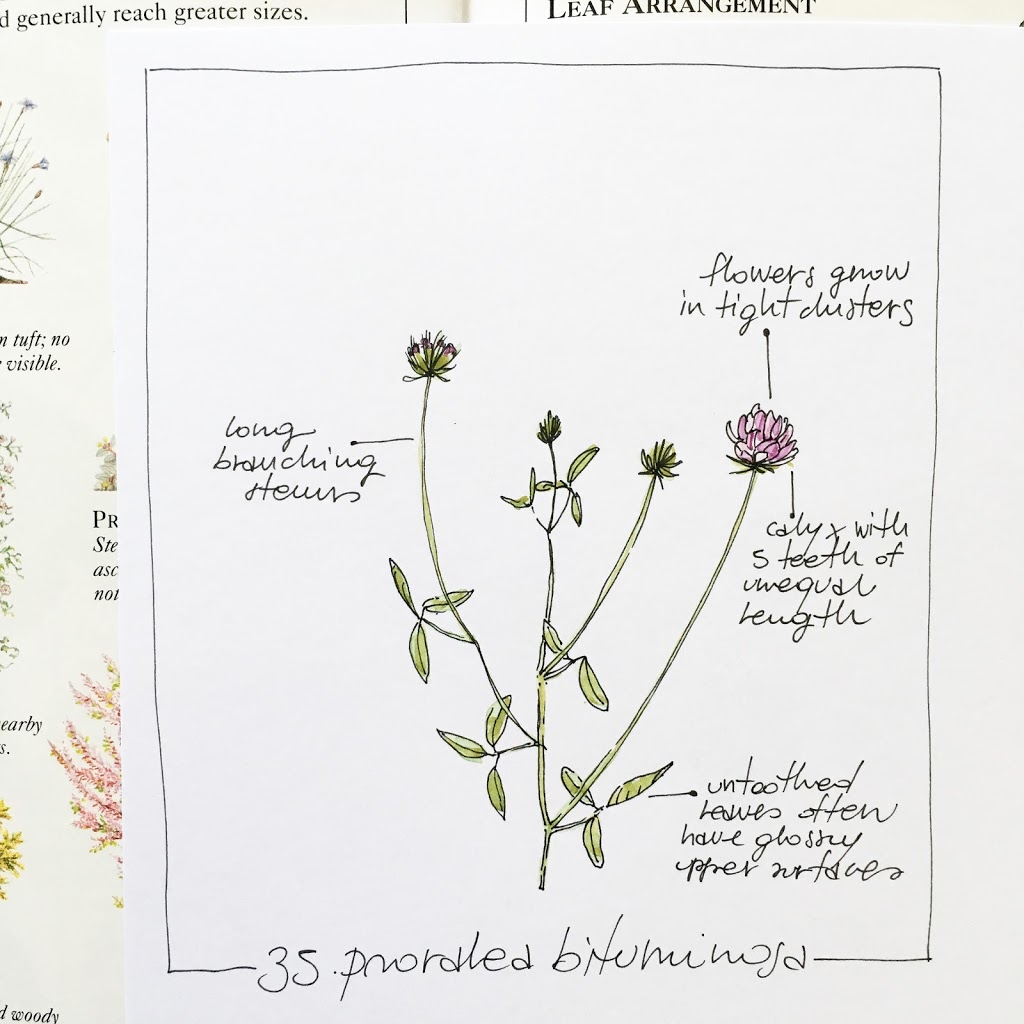 d generally reach greater sizes.
LEAF ARRANGEMENT
n tuft; no
visible.
PR
Ste
asc
not
earby
s.
d woody
flowers grow
in tight clusters
long
branching
stems
calyx with
5 teeth of
unequal
length
untoothed
leaves often
have glossy
upper surfaces
35. psoralea bituminosa